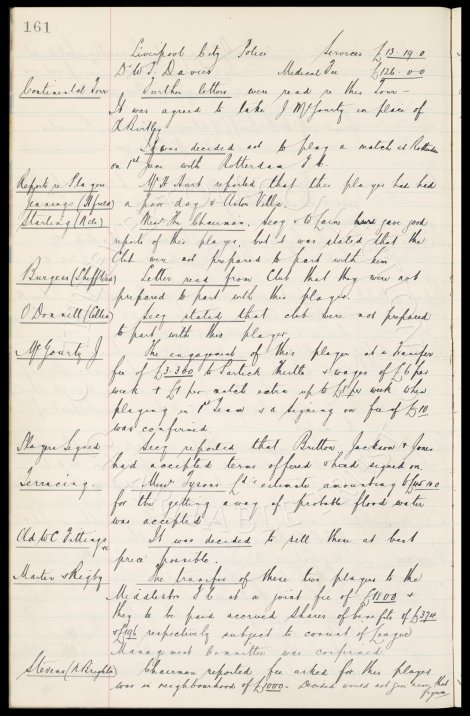 161
Liverpool City Police Services £13.19.0
Dr W. J. Davies Medical Fee £126.0.0
Continental Tour Further letters were read re this Tour -
It was agreed to take J McGourty in place of
Birtley
It was decided not to play a match at Rotterdam
on 1st June with Rotterdam F.C.
Reports re Players Mr H. Hart reported that this player had had
Jennings (H'field) a poor day v Aston Villa.
Starling (N'cle) Mess The Chairman, Secy & to have gave good
reports of this player, but it was stated that the
Club were not prepared to part with him
Burgess (Sheff Wed) Letter read from Club that they were not
prepared to part with this player.
O'Donnell (Celtic) Secy stated that club were not prepared
to part with this player
McGourty J. The engagement of this player at a transfer
fee of £3.300 to Partick Thistle & wages of £6 per
week & £1 per match extra up to £8 per week when
playing in 1st Team & a signing on fee of £10
was confirmed.
Players Signed Secy reported that Britton, Jackson & Jones
had accepted terms offered & had signed on.
Terracing. Messrs Tysons Ld's estimate amounting to
for the getting away of probable flood water
was accepted
Old W C Fittings It was decided to sell them at best
price possible.
Martin & Rigby The transfer of these two players to the
Middlesbro F.C. at a joint fee of £1100 &
they to be paid accrued shares of benefits of £374
& £196 respectively subject to consent of League
Management Committee was confirmed
Stevens (N Brighton) Chairman reported fee asked for this player
was in neighbourhood of £1000 - Decided would not go near that
figure